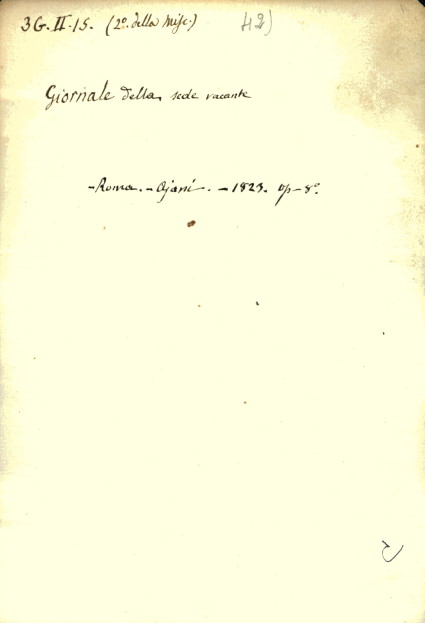 3G. II. 15. (2º. della Misc.) 42)
Giornale della sede vacante
- Roma. - Ajani. - 1823. op - 8º.